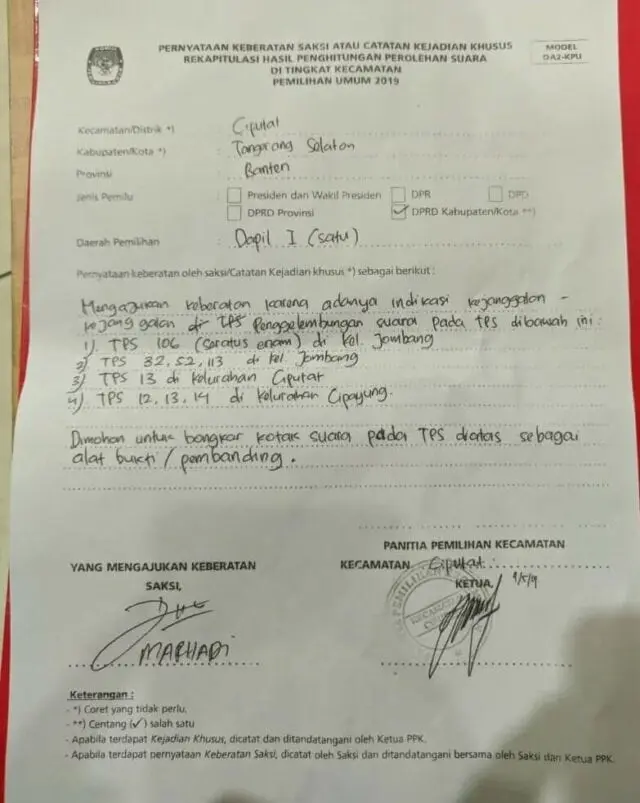 PERNYATAAN KEBERATAN SAKSI ATAU CATATAN KEJADIAN KHUSUS
REKAPITULASI HASIL PENGHITUNGAN PEROLEHAN SUARA
DI TINGKAT KECAMATAN
PEMILIHAN UMUM 2019
MODEL
DA2-KPU
Kecamatan/Distrik *) : Ciputat
Kabupaten/Kota *) : Tangerang Selatan
Provinsi : Banten
Jenis Pemilu Presiden dan Wakil Presiden DPR DPD
DPRD Provinsi ✓ DPRD Kabupaten/Kota **)
Daerah Pemilihan : Dapil I (satu)
Pernyataan keberatan oleh saksi/Catatan Kejadian khusus *) sebagai berikut :
Mengajukan keberatan karena adanya indikasi kejanggalan -
kejanggalan di TPS Penggelembungan suara pada TPS dibawah ini :
1) TPS 106 (Seratus enam) di kel. Jombang
2) TPS 32, 52, 113 di kel. Jombang
3) TPS 13 di kelurahan Ciputat
4) TPS 12, 13, 14 di kelurahan Cipayung.
Dimohon untuk bongkar kotak suara pada TPS diatas sebagai
alat bukti / pembanding.
PANITIA PEMILIHAN KECAMATAN
YANG MENGAJUKAN KEBERATAN
KECAMATAN Ciputat
SAKSI,
KETUA,
MARHADI
Keterangan :
- *) Coret yang tidak perlu.
- **) Centang (✓) salah satu
- Apabila terdapat Kejadian Khusus, dicatat dan ditandatangani oleh Ketua PPK.
- Apabila terdapat pernyataan Keberatan Saksi, dicatat oleh Saksi dan ditandatangani bersama oleh Saksi dan Ketua PPK.